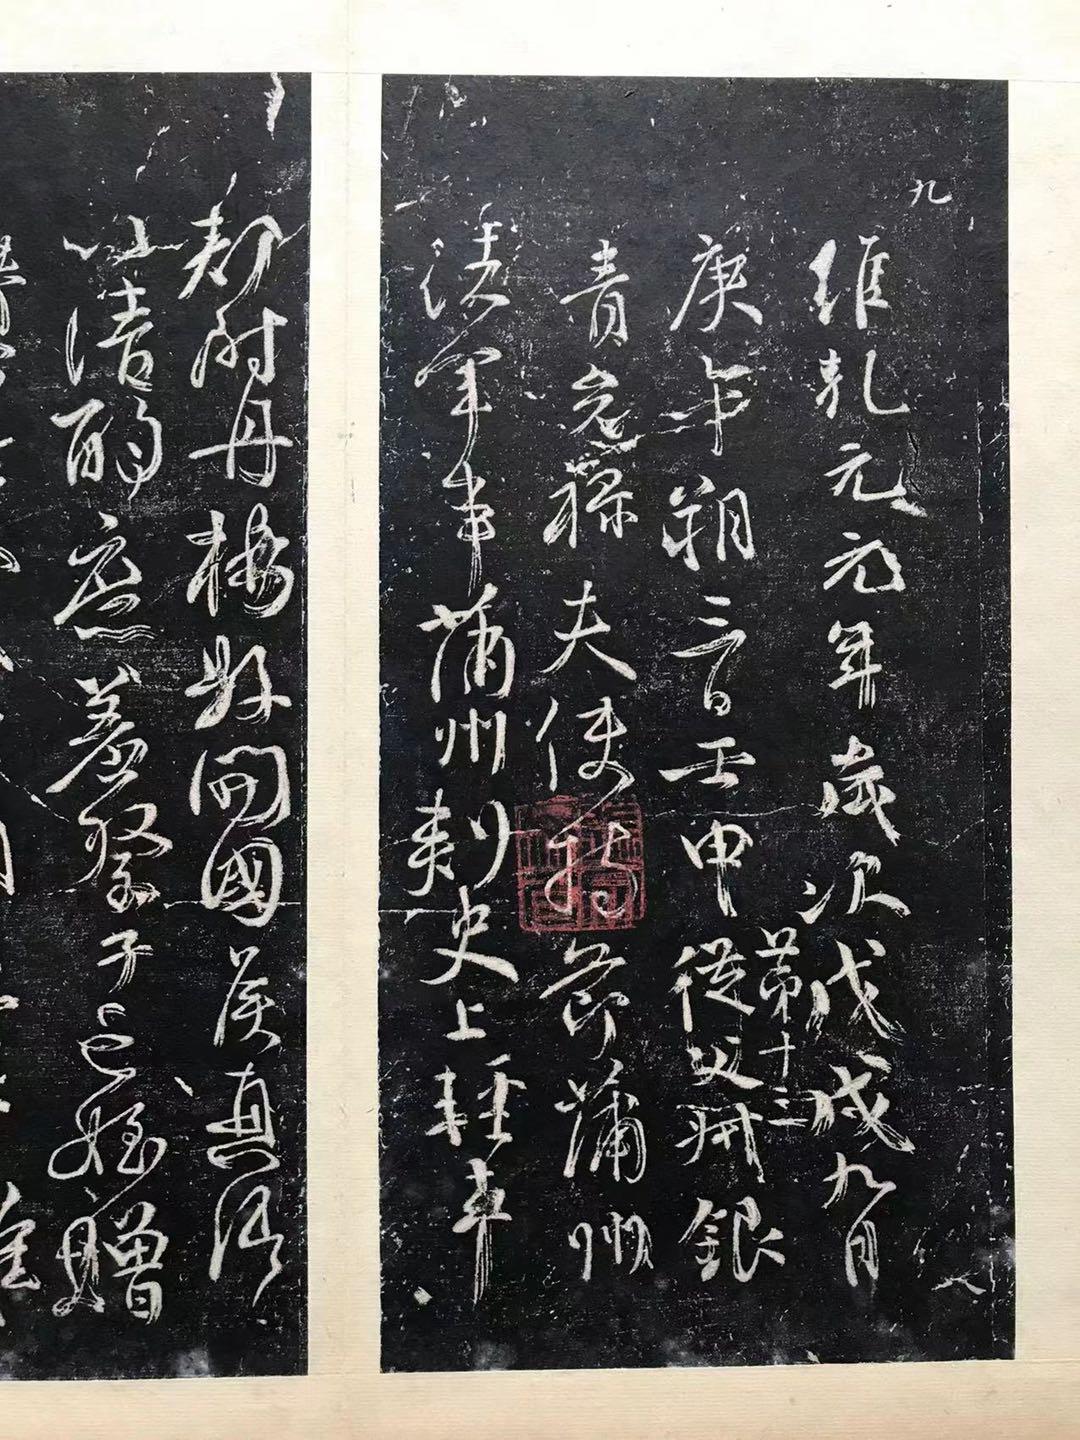 九
維乾元元年歲次戊戌九月
庚午朔三日壬申從父叔銀
第十三
青光祿夫使持節蒲州
諸軍事蒲州刺史上輕車
都尉丹楊縣開國侯真卿
以清酌庶羞祭于亡姪贈